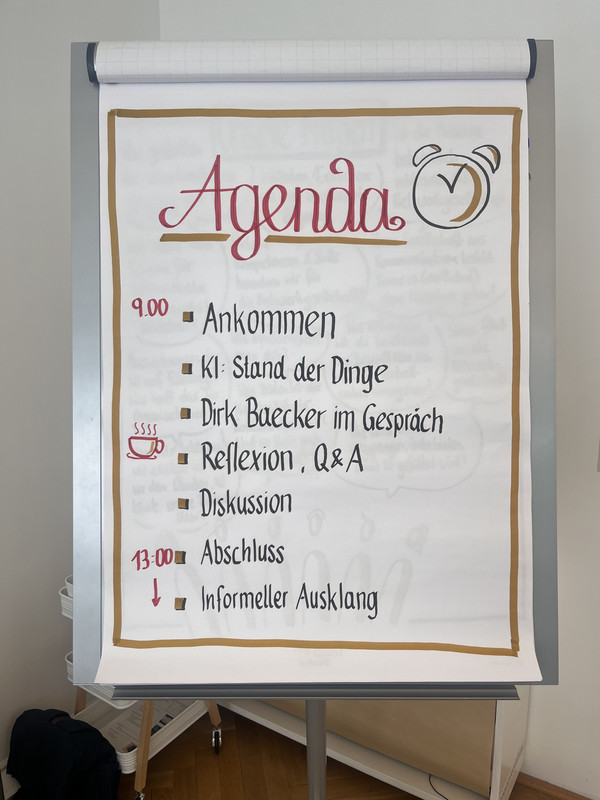 Agenda
9.00 Ankommen
KI: Stand der Dinge
Dirk Baecker im Gespräch
Reflexion, Q&A
Diskussion
13:00 Abschluss
Informeller Ausklang